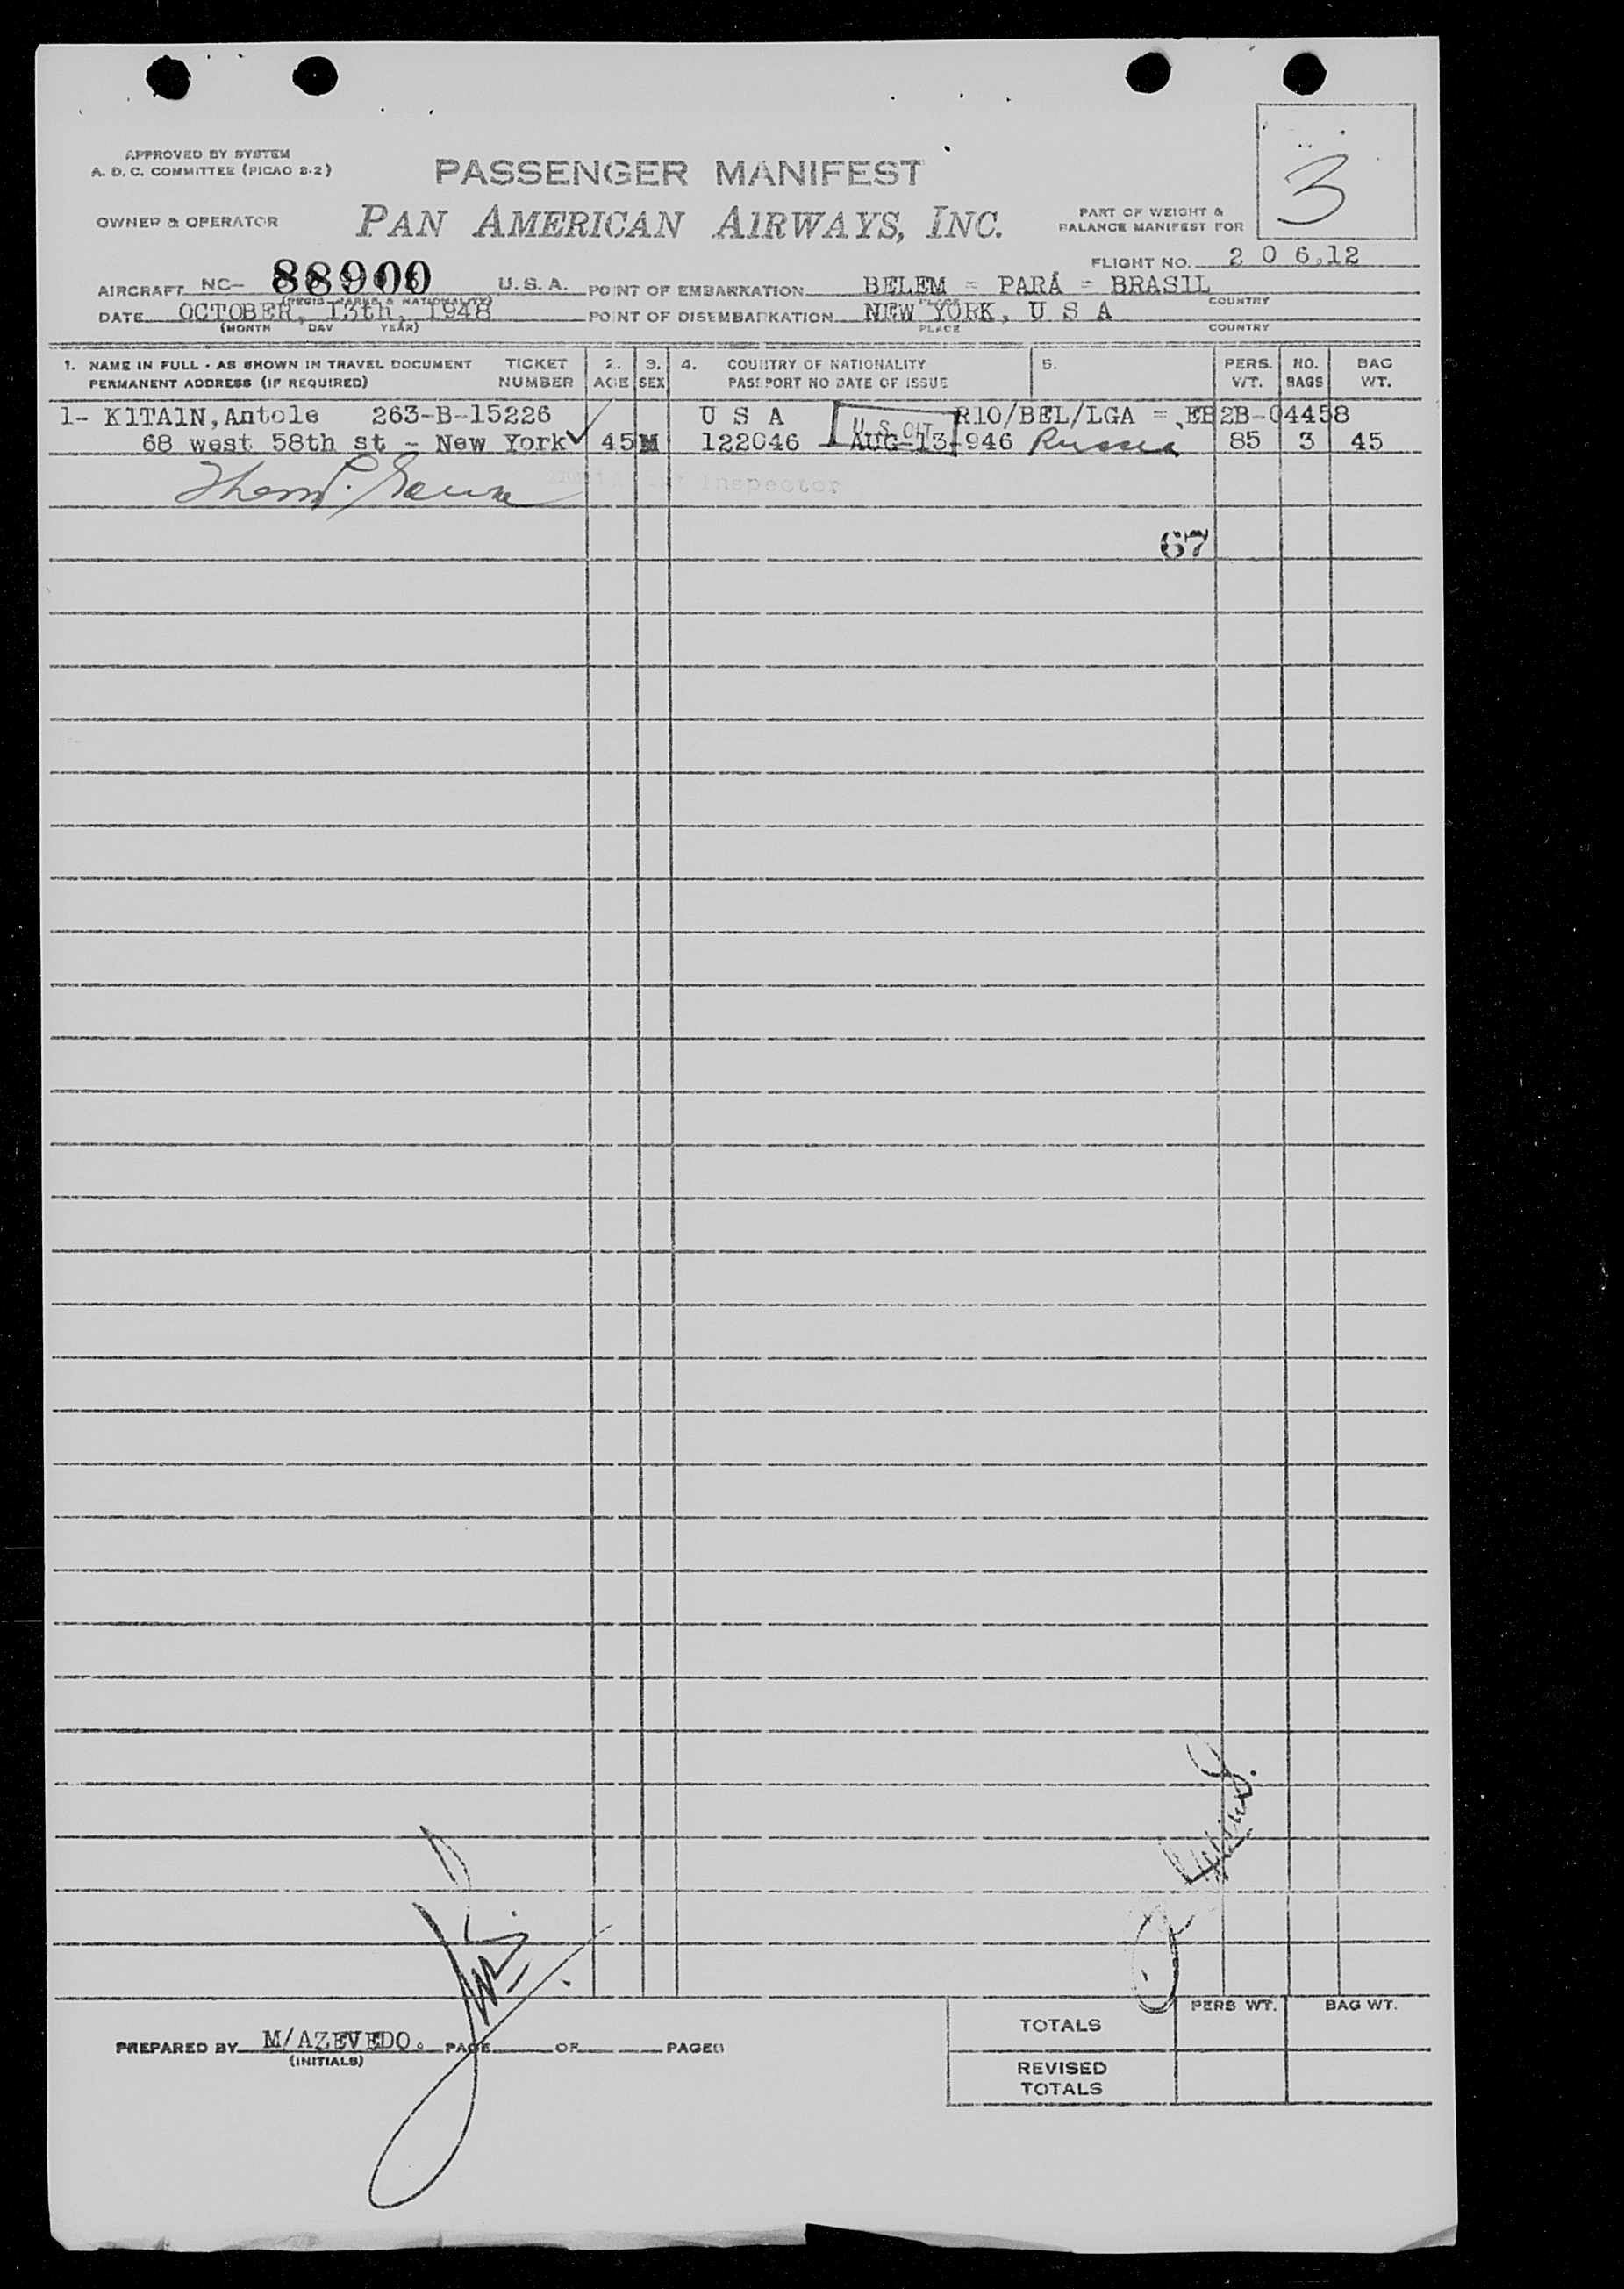 3
APPROVED BY SYSTEM
A. D. C. COMMITTEE (PICAO 8-2)
PASSENGER MANIFEST
OWNER & OPERATOR PAN AMERICAN AIRWAYS, INC.
PART OF WEIGHT &
BALANCE MANIFEST FOR
FLIGHT NO. 2 0 6.12
AIRCRAFT NC- 88900 U. S. A. POINT OF EMBARKATION BELEM = PARÁ = BRASIL
(REGIS MARKS & NATIONALITY) PLACE COUNTRY
DATE OCTOBER, 13th, 1948 POINT OF DISEMBARKATION NEW YORK, U S A
(MONTH DAY YEAR) PLACE COUNTRY
1. NAME IN FULL - AS SHOWN IN TRAVEL DOCUMENT TICKET 2. 3. 4. COUNTRY OF NATIONALITY 5. PERS. NO. BAG
PERMANENT ADDRESS (IF REQUIRED) NUMBER AGE SEX PASSPORT NO DATE OF ISSUE WT. BAGS WT.
1- K1TA1N,Antole 263-B-15226 U S A U. S. CIT R1O/BEL/LGA = EB2B-04458
68 west 58th st - New York ✓ 45 M 122046 - AUG-13-946 Russia 85 3 45
Inspector
67
PREPARED BY M/AZEVEDO. PAGE OF PAGES
(INITIALS)
PERS WT. BAG WT.
TOTALS
REVISED
TOTALS